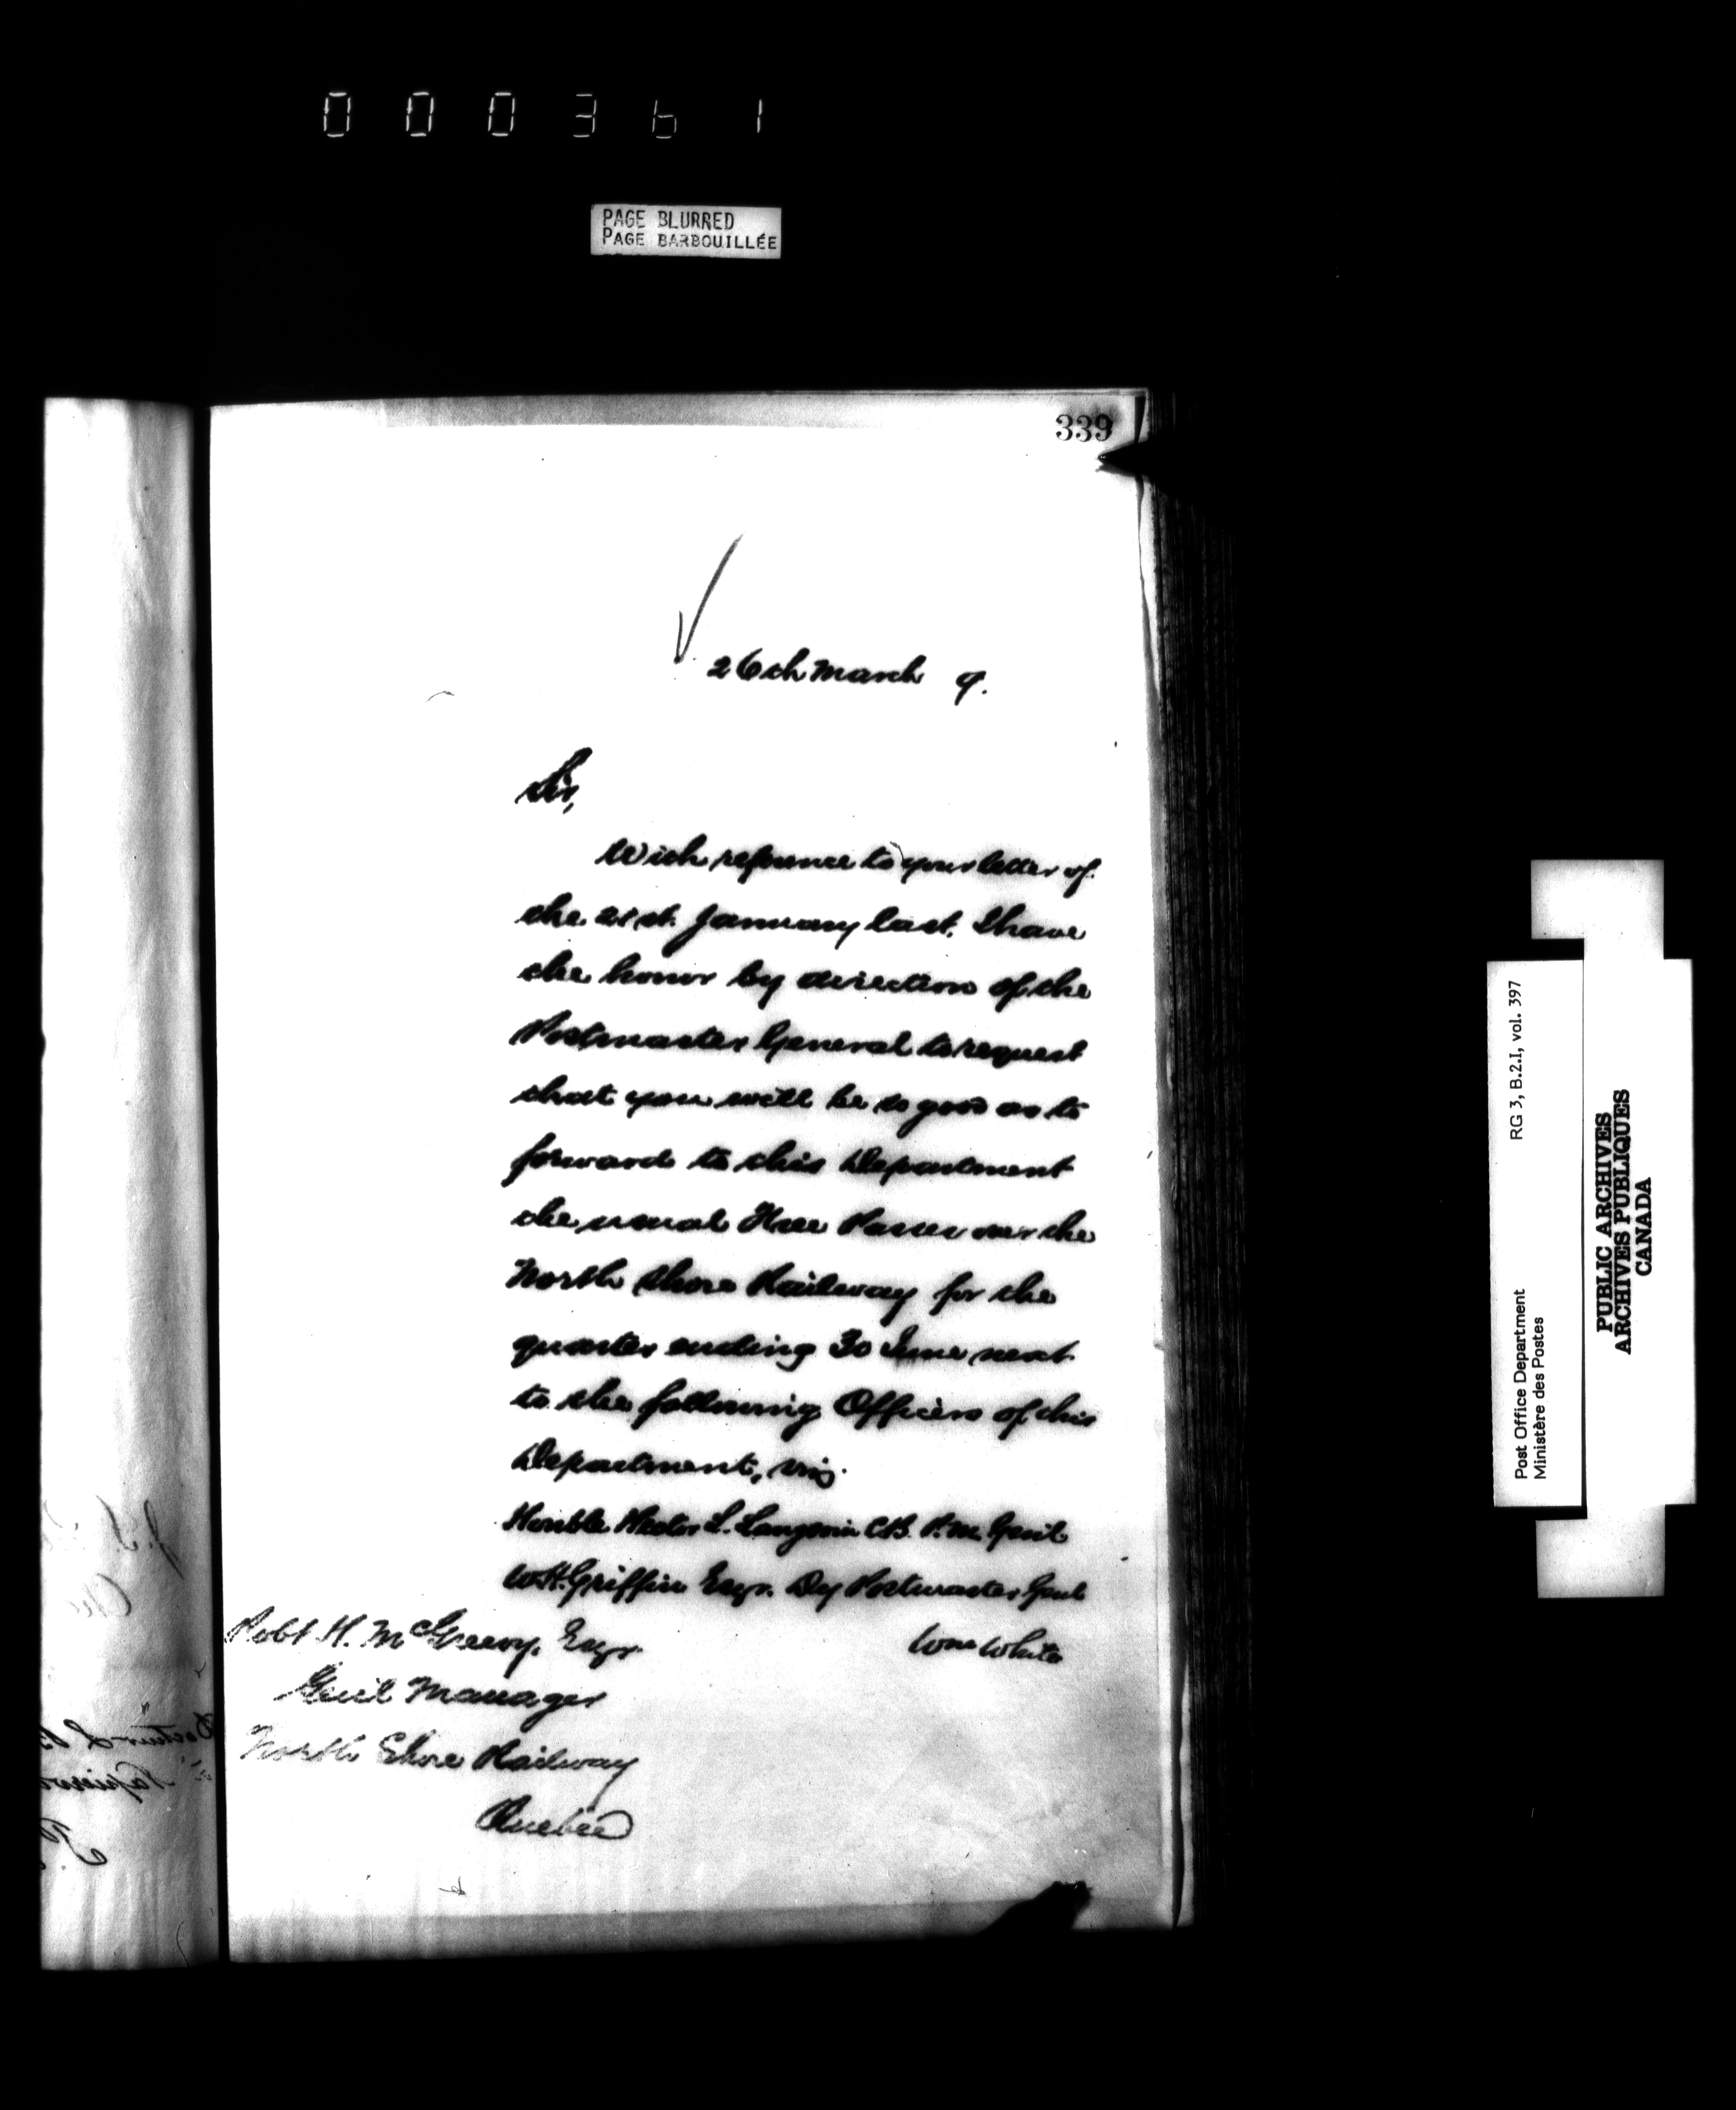 000361
PAGE BLURRED
PAGE BARBOUILLÉE
339
26th March 9.
Sir,
With reference to your letter of
the 21st. January last, I have
the honor by direction of the
Postmaster General to request
that you will be so good as to
forward to this Department
the usual Free Passes over the
North Shore Railway for the
quarter ending 30 June next
to the following Officers of this
Department, viz.
Honble Hector L. Langevin C.B. P.M. Genl
W.H. Griffin Esqr. Dy Postmaster Genl
Wm White
Robt H. McGreevy. Esqr.
Genl Manager
North Shore Railway
Quebec
RG 3, B.2.I, vol. 397
Post Office Department
Ministère des Postes
PUBLIC ARCHIVES
ARCHIVES PUBLIQUES
CANADA